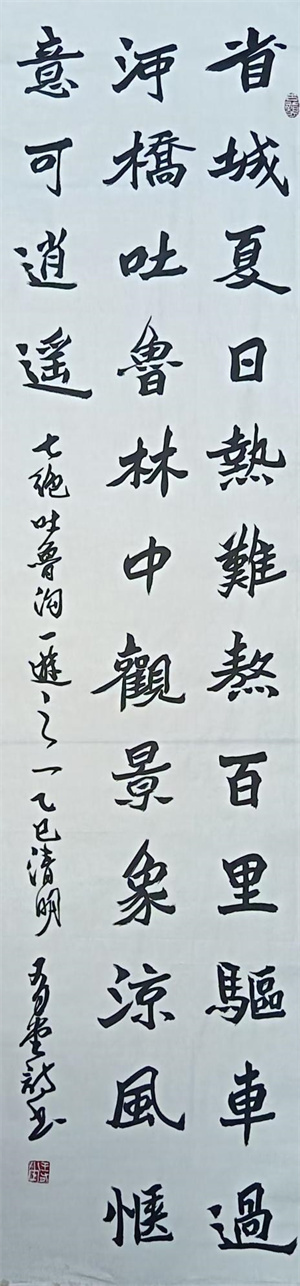 省城夏日熱難熬百里驅車過
河橋吐魯林中觀景象涼風惬
意可逍遥
七絶吐魯沟一遊之一乙巳清明